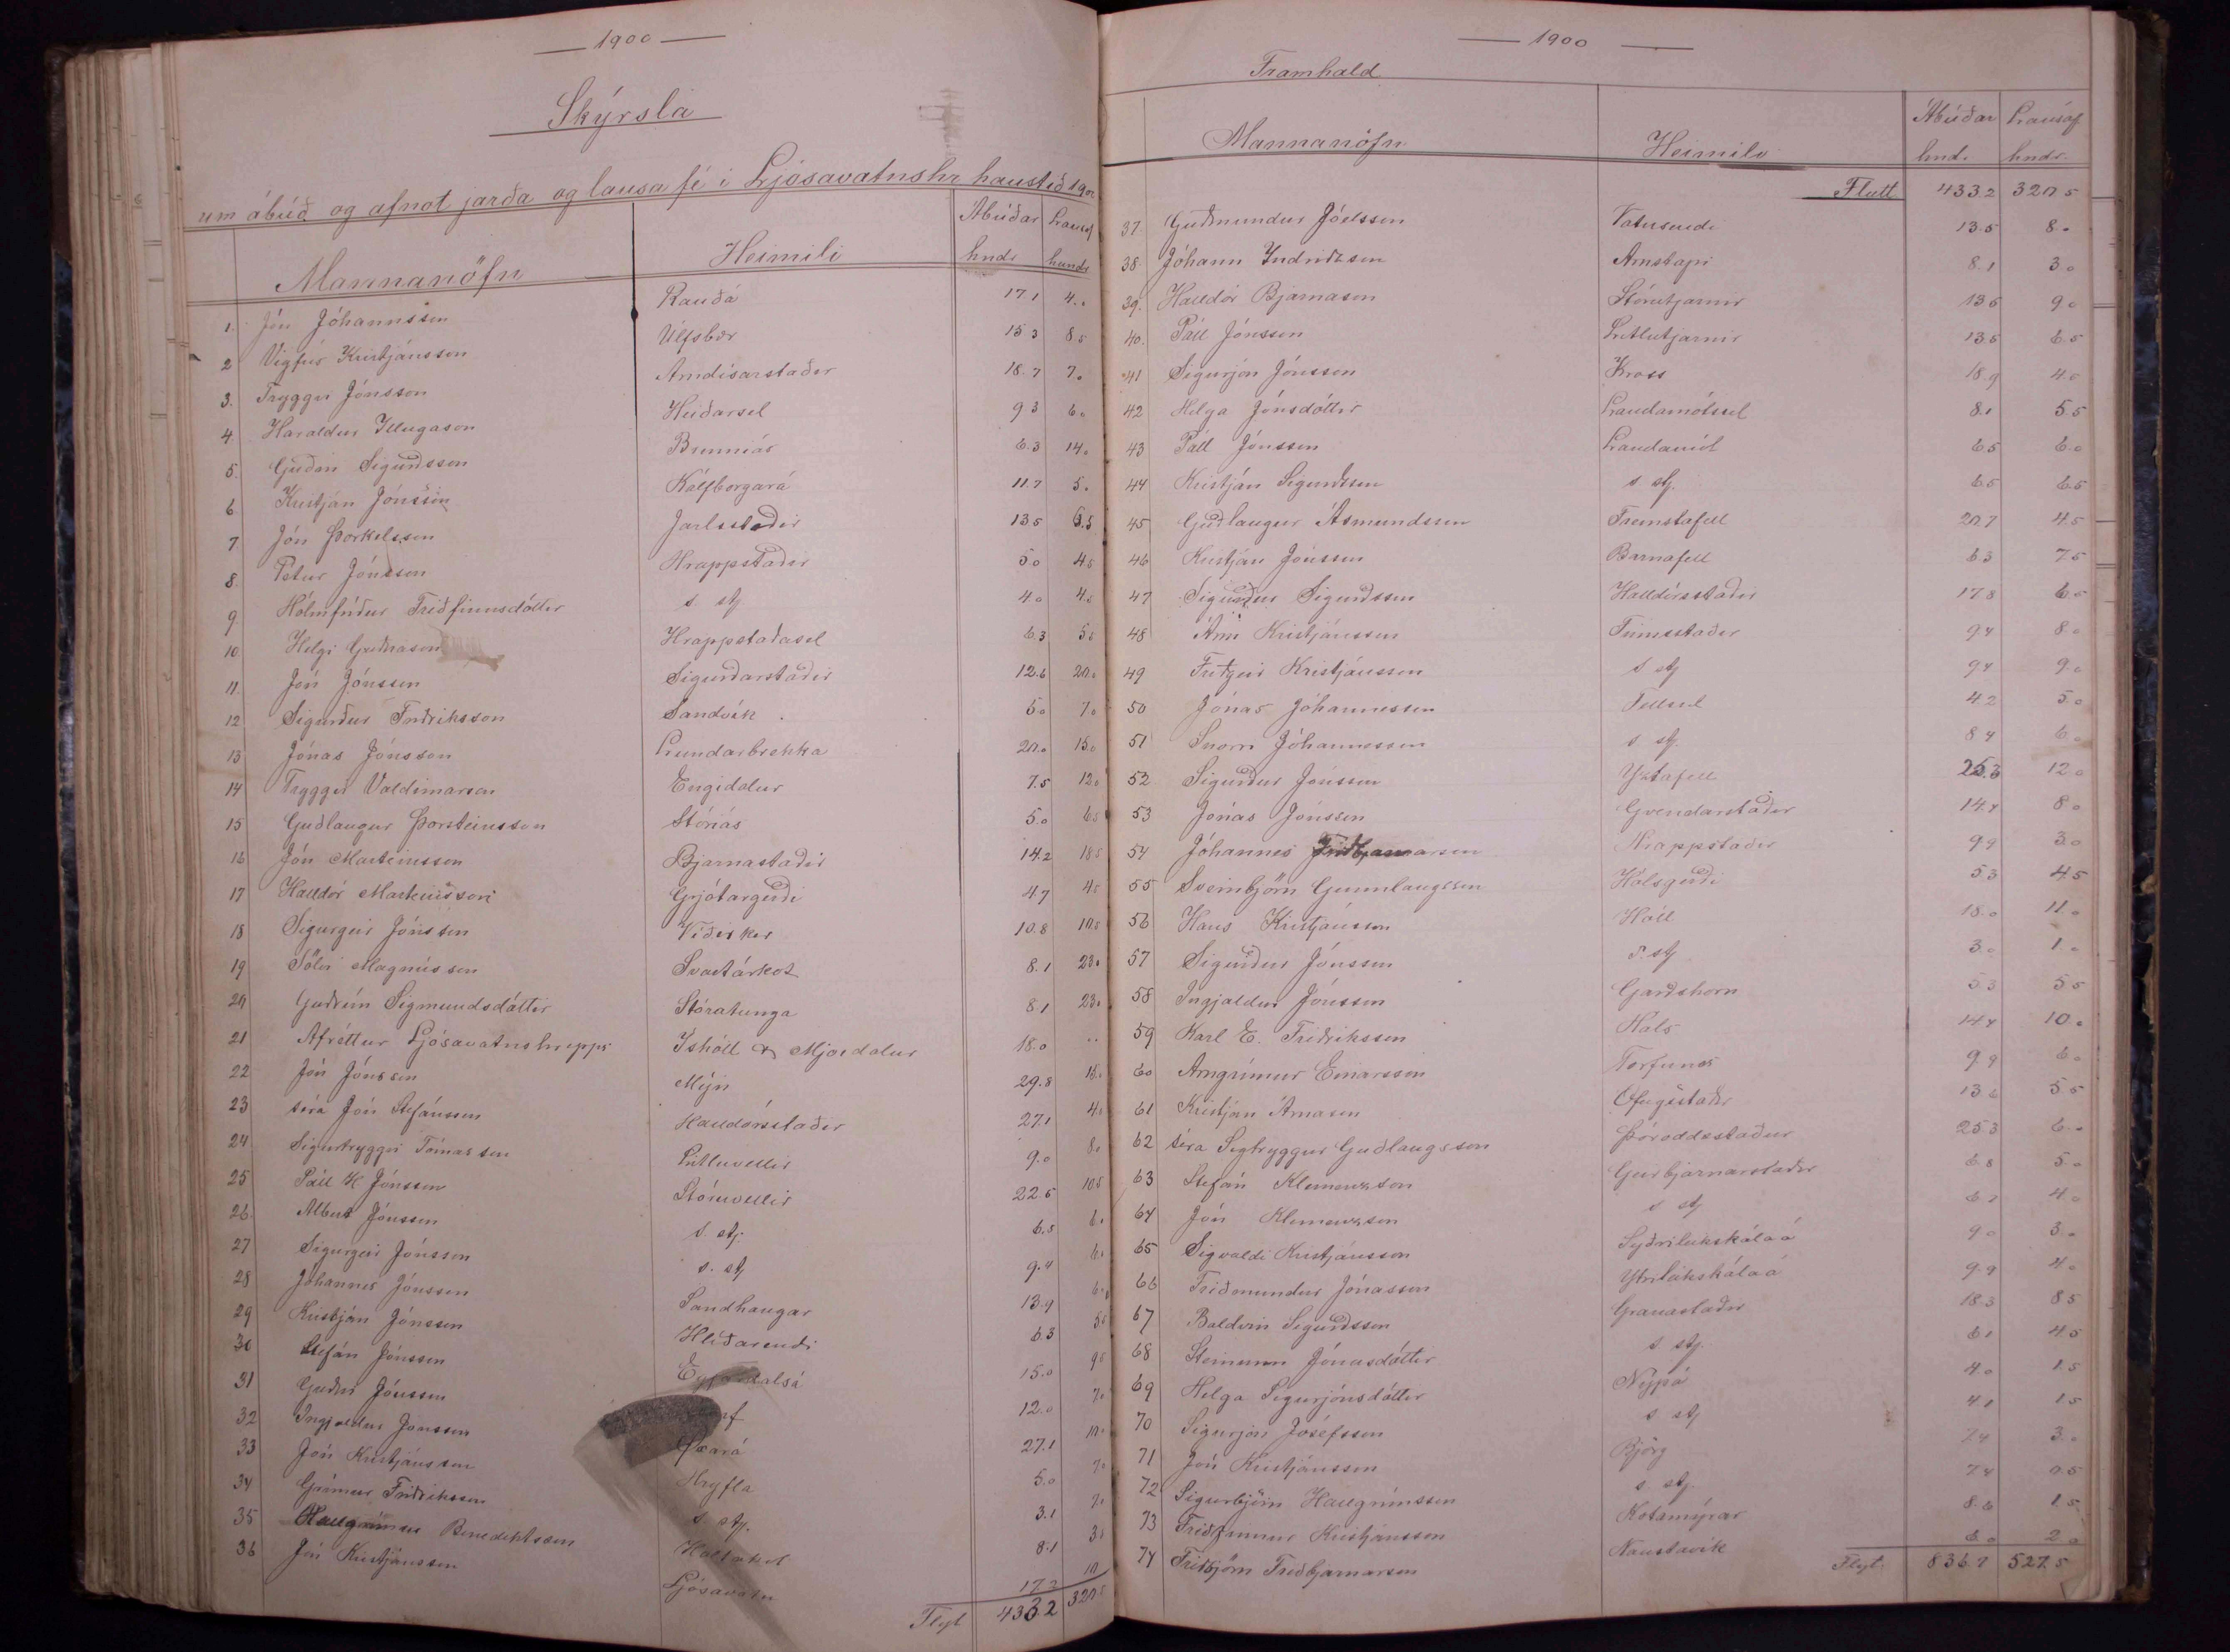 1900
Skýrsla
um ábúð og afnot jarða og lausafé í Ljósavatnshr haustið 1900
Mannanöfn Heimili Ábúðar hndr Lausaf hundr
1. Jón Jóhannsson Rauðá 17.1 4.0
2 Vigfús Kristjánsson Úlfsbær 15 3 8 5
3. Tryggvi Jónsson Arndísarstaðir 18.7 7.0
4. Haraldur Illugason Heiðarsel 9 3 6 0
5. Guðni Sigurðsson Brunnás 6.3 14.0
6 Kristján Jónsson Kálfborgará 11.7 5.0
7. Jón Þorkelsson Jarlsstaðir 13 5 6.5
8. Petur Jónsson Hrappstaðir 5 0 4 5
9 Hólmfríður Friðfinnsdóttir s stj 4.0 4.0
10. Helgi Guðnason Hrappstaðasel 6.3 5 0
11. Jón Jónsson Sigurðarstaðir 12.6 20.0
12 Sigurður Friðriksson Sandvík 6 0 7.0
13 Jónas Jónsson Lundarbrekka 20.0 15.0
14 Tryggvi Valdimarson Engidalur 7.5 12.0
15 Guðlaugur Þorsteinsson Stóriás 5.0 6 5
16 Jón Marteinsson Bjarnastaðir 14.2 18 5
17 Halldór Marteinsson Grjótargerði 4 7 4 5
18 Sigurgeir Jónsson Víðirker 10.8 10 5
19 Sölvi Magnússon Svartárkot 8.1 23.0
20 Guðrún Sigmundsdóttir Stóratunga 8.1 23.0
21 Afréttur Ljósavatnshrepps Íshóll & Mjóidalur 18.0 "
22 Jón Jónsson Mýri 29.8 15.
23 séra Jón Stefánsson Halldórsstaðir 27.1 4.0
24 Sigurtryggvi Tómasson Litluvellir 9.0 8.0
25 Páll H Jónsson Stóruvellir 22.5 10 5
26. Albert Jónsson s. stj. 6.5 6.
27 Sigurgeir Jónsson s. stj 9.4 6.
28 Jóhannes Jónsson Sandhaugar 13.9 6.0
29 Kristján Jónsson Hlíðarendi 6.3 5 5
30 Stefán Jónsson 15.0 9 0
31 Guðni Jónsson 12.0 7.0
32 Ingjaldur Jónsson Öxará 27.1 10.
33 Jón Kristjánsson Hryfla 5.0 7.0
34 Grímur Friðriksson s stj. 3.1 7.0
35 Hallgrímur Benediktsson Holtakot 8.1 3 5
36 Jón Kristjánsson Ljósavatn 17 2 10
Flyt 433 2 320 5
1900
Framhald
Mannanöfn Heimili Ábúðar hnd. Lausaf hndr.
Flutt 433 2 320 5
37. Guðmundur Jóelsson Vatnsendi 13.5 8.0
38. Jóhann Indriðason Arnstapi 8.1 3 0
39. Halldór Bjarnason Stórutjarnir 13 5 9 0
40. Páll Jónsson Litlutjarnir 13.5 6.5
41 Sigurjón Jónsson Kross 18.9 4.0
42 Helga Jónsdóttir Landamótssel 8.1 5.5
43 Páll Jónsson Landamót 6.5 6.0
44 Kristján Sigurðsson s stj. 6.5 6.5
45 Guðlaugur Ásmundsson Fremstafell 20.7 4.5
46 Kristján Jónsson Barnafell 6 3 7 5
47 Sigurður Sigurðsson Halldórsstaðir 17.8 6.0
48 Árni Kristjánsson Finnsstaðir 9 4 8.0
49 Friðgeir Kristjánsson s stj 9.4 9.0
50 Jónas Jóhannesson Fellsel 4.2 5.0
51 Snorri Jóhannesson s stj. 8 4 6.0
52 Sigurður Jónsson Yztafell 25.3 12.0
53 Jónas Jónsson Gvendarstaðir 14.4 8.0
54 Jóhannes Friðbjarnarson Hrappstaðir 9 9 3.0
55 Sveinbjörn Gunnlaugsson Hálsgerði 5.3 4.5
56 Hans Kristjánsson Hóll 18.0 11.0
57 Sigurður Jónsson s. stj 3.0 1.0
58 Ingjaldur Jónsson Garðshorn 5.3 5 5
59 Karl E. Friðriksson Háls 14.4 10.0
60 Arngrímur Einarsson Torfunes 9 9 6.0
61 Kristján Árnason Ófeigsstaðir 13 6 5 5
62 séra Sigtryggur Guðlaugsson Þóroddsstaður 25 3 6.0
63 Stefán Klemenzson Geirbjarnarstaðir 6 8 5.0
64 Jón Klemenzson s stj 6 7 4.0
65 Sigvaldi Kristjánsson Syðrileikskálaá 9 0 3.0
66 Friðmundur Jónasson Ytrileikskálaá 9.9 4.0
67 Baldvin Sigurðsson Granastaðir 18.3 8 5
68 Steinunn Jónasdóttir s. stj. 6 1 4 5
69 Helga Sigurjónsdóttir Nýpá 4.0 1.5
70 Sigurjón Jósefsson s stj 4 1 1 5
71 Jón Kristjánsson Björg 7.4 3.0
72 Sigurbjörn Hallgrímsson s. stj. 7.4 0.5
73 Friðfinnur Kristjánsson Kotamýrar 8.6 1.5
74 Friðbjörn Friðbjarnarson Naustavík 6.0 2 0
Flyt. 836.7 527.5